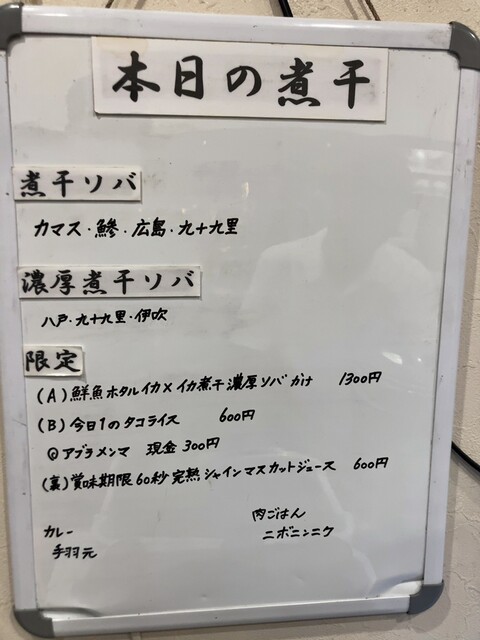 本日の煮干
煮干ソバ
カマス・鯵・広島・九十九里
濃厚煮干ソバ
八戸・九十九里・伊吹
限定
(A) 鮮魚ホタルイカ×イカ煮干濃厚ソバ 1300円
(B) 今日1のタコライス 600円
◎アブラメンマ 現金300円
(裏) 賞味期限60秒完熟シャインマスカットジュース 600円
肉ごはん
カレー ニボニンニク
手羽元